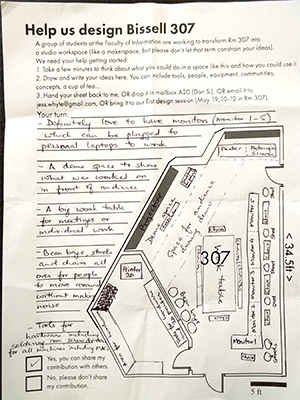 Help us design Bissell 307
A group of students at the Faculty of Information are working to transform Rm 307 into
a studio workspace (like a makerspace, but please don't let that term constrain your ideas).
We need your help getting started:
1. Take a few minutes to think about what you could do in a space like this and how you could use it
2. Draw and write your ideas here. You can include tools, people, equipment, communities,
concepts, a cup of tea...
3. Hand your sheet back to me, OR drop it in mailbox A20 (Dan S.), OR email it to
jess.whyte@gmail.com, OR bring it to our first design session (May 19, 10-12 in Rm 307).
Your turn:
- Definitely love to have monitors (monitor 1-5)
which can be plugged to
personal laptops to work
- A demo space to show
what was worked on
in front of audience
- A big work table
for meetings or
individual work
- Bean bags stools
and chairs all
over for people
to move around
without making
noise
- Tools for
hardware including
soldering iron screwdrivers
for all machines including
Projector
Demo space
Space for audience
during demo
307
Work table
Chair
Printer
3D
Monitor 1
Monitor 2
Monitor 3
Monitor 4
Monitor 5
< 34.5ft >
5 ft
Yes, you can share my
contribution with others.
No, please don't share
my contribution. .